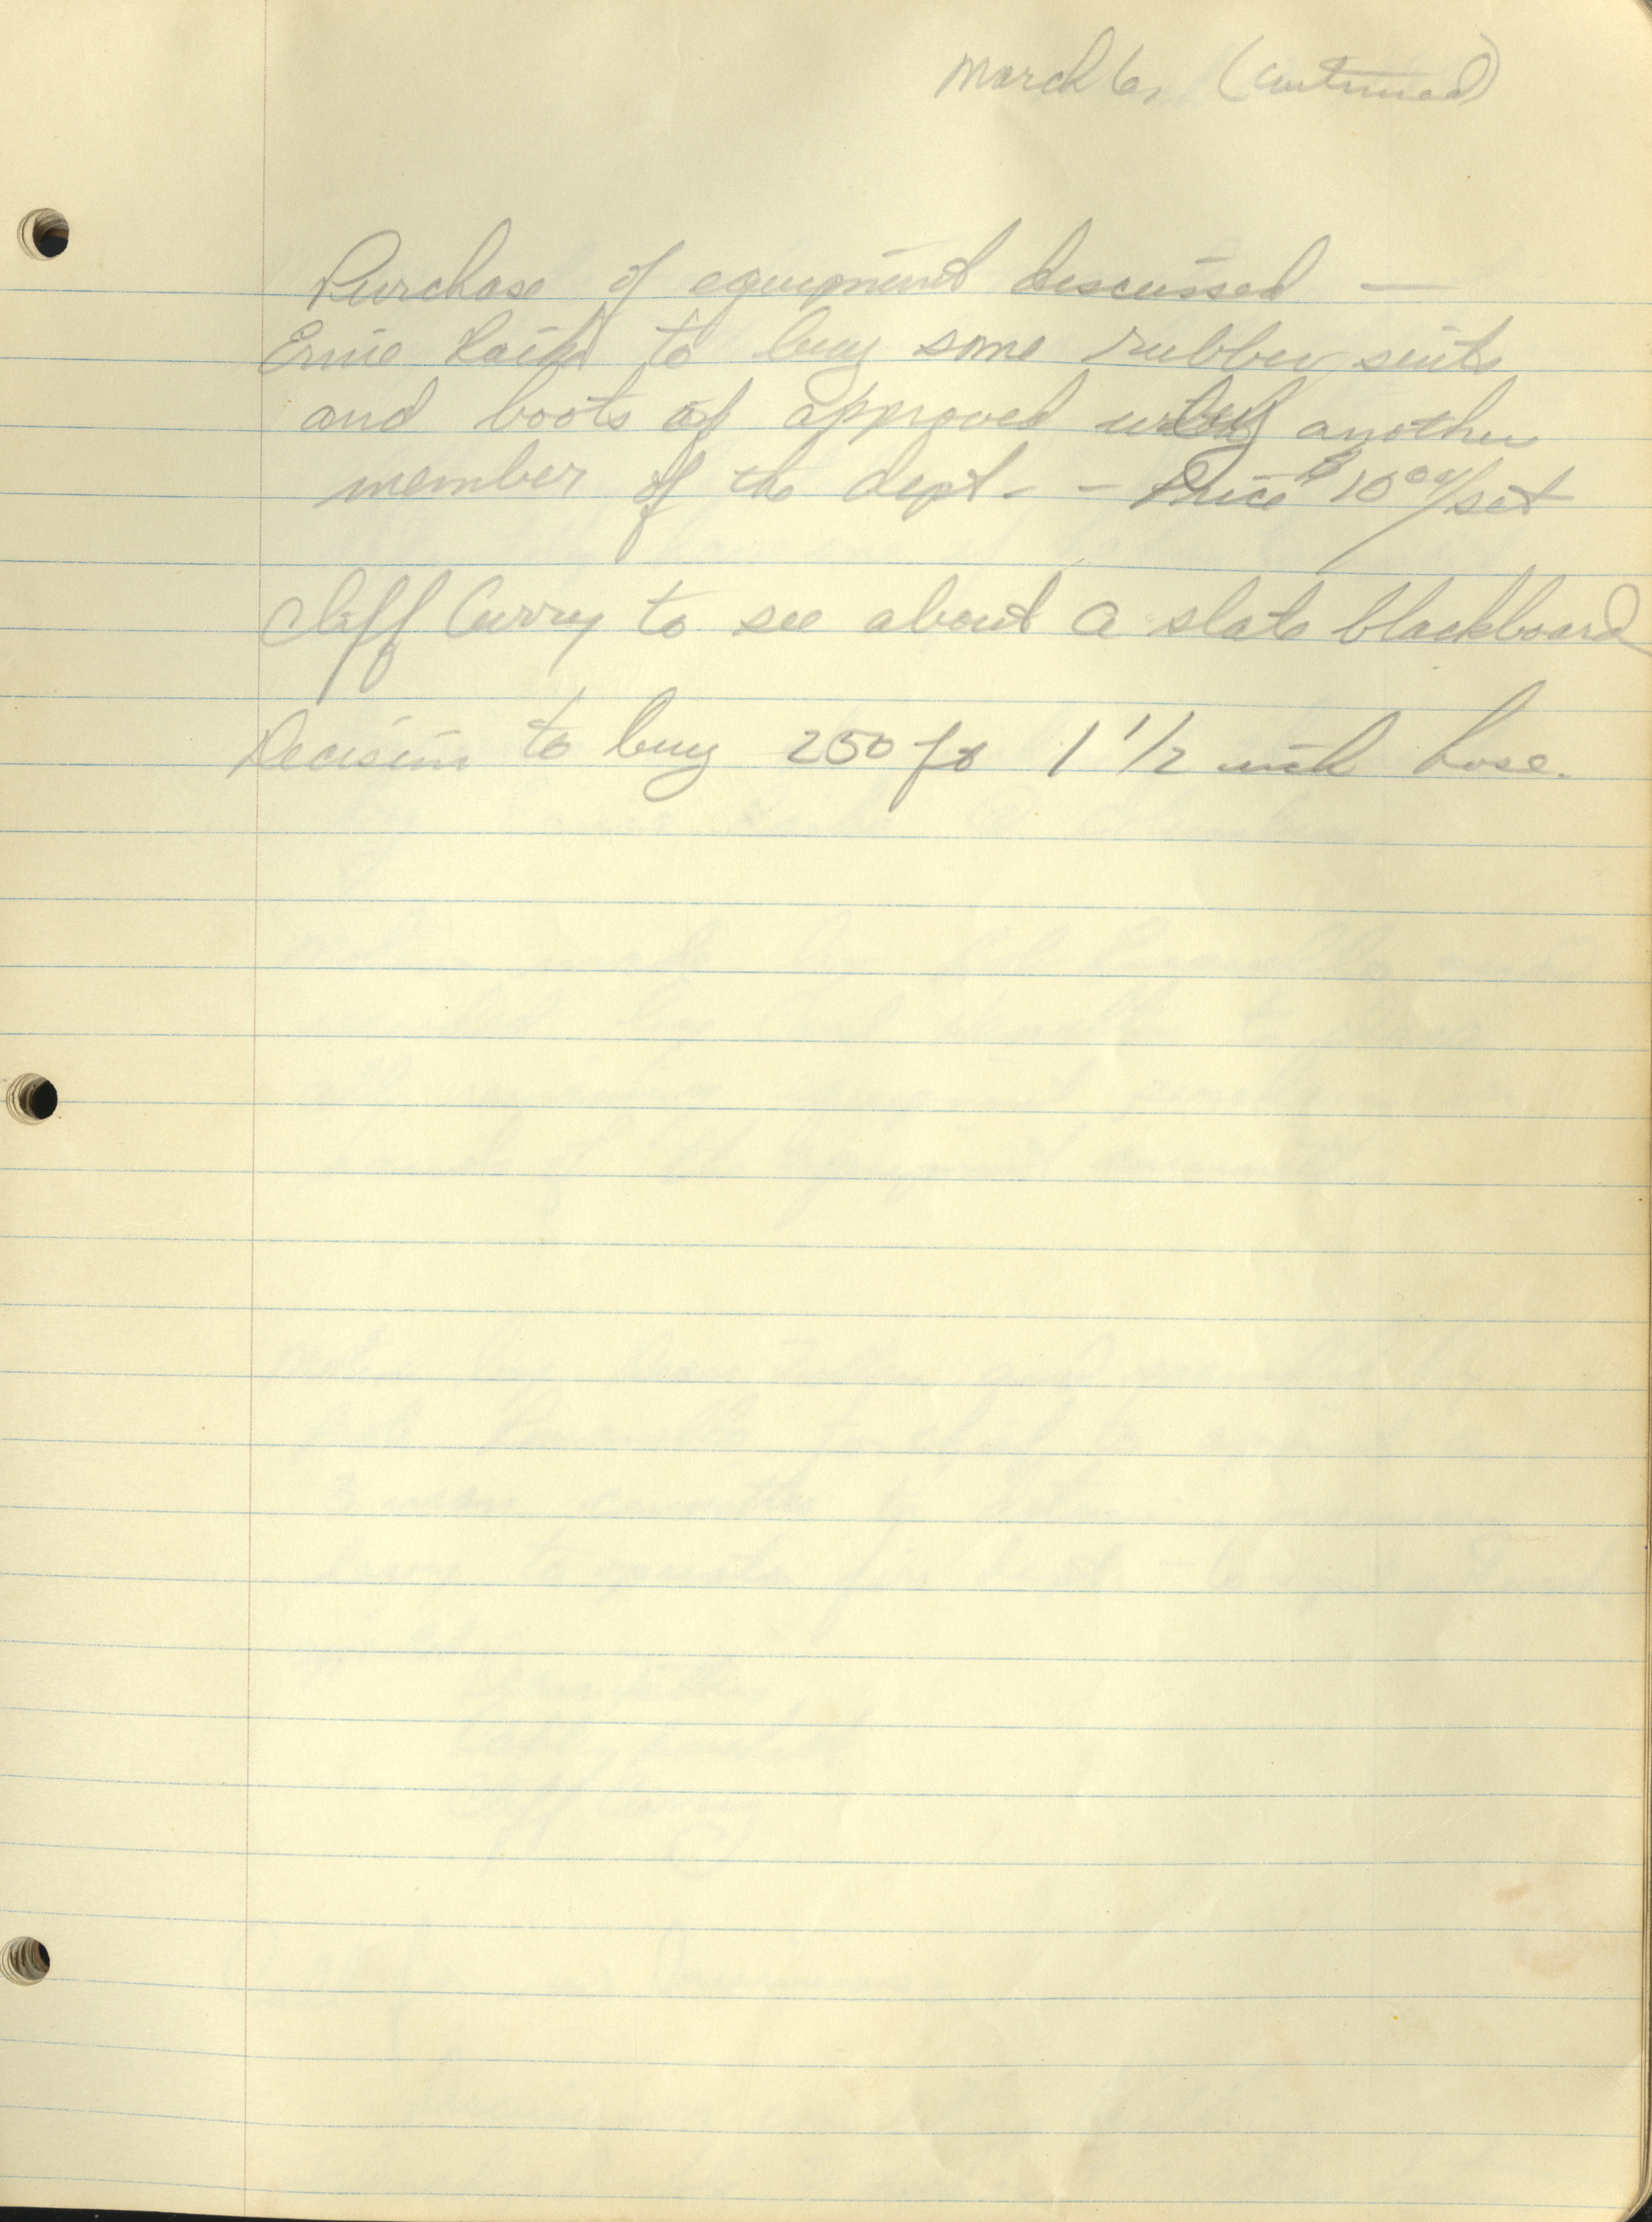 March 6, (Continued)
Purchase of equipment discussed —
Ernie to buy some rubber suits
and boots if approved with another
member of the dept - - Price $ 10 00/set
Cliff Curry to see about a slate blackboard
Decision to buy 250 ft 1 1/2 inch hose.